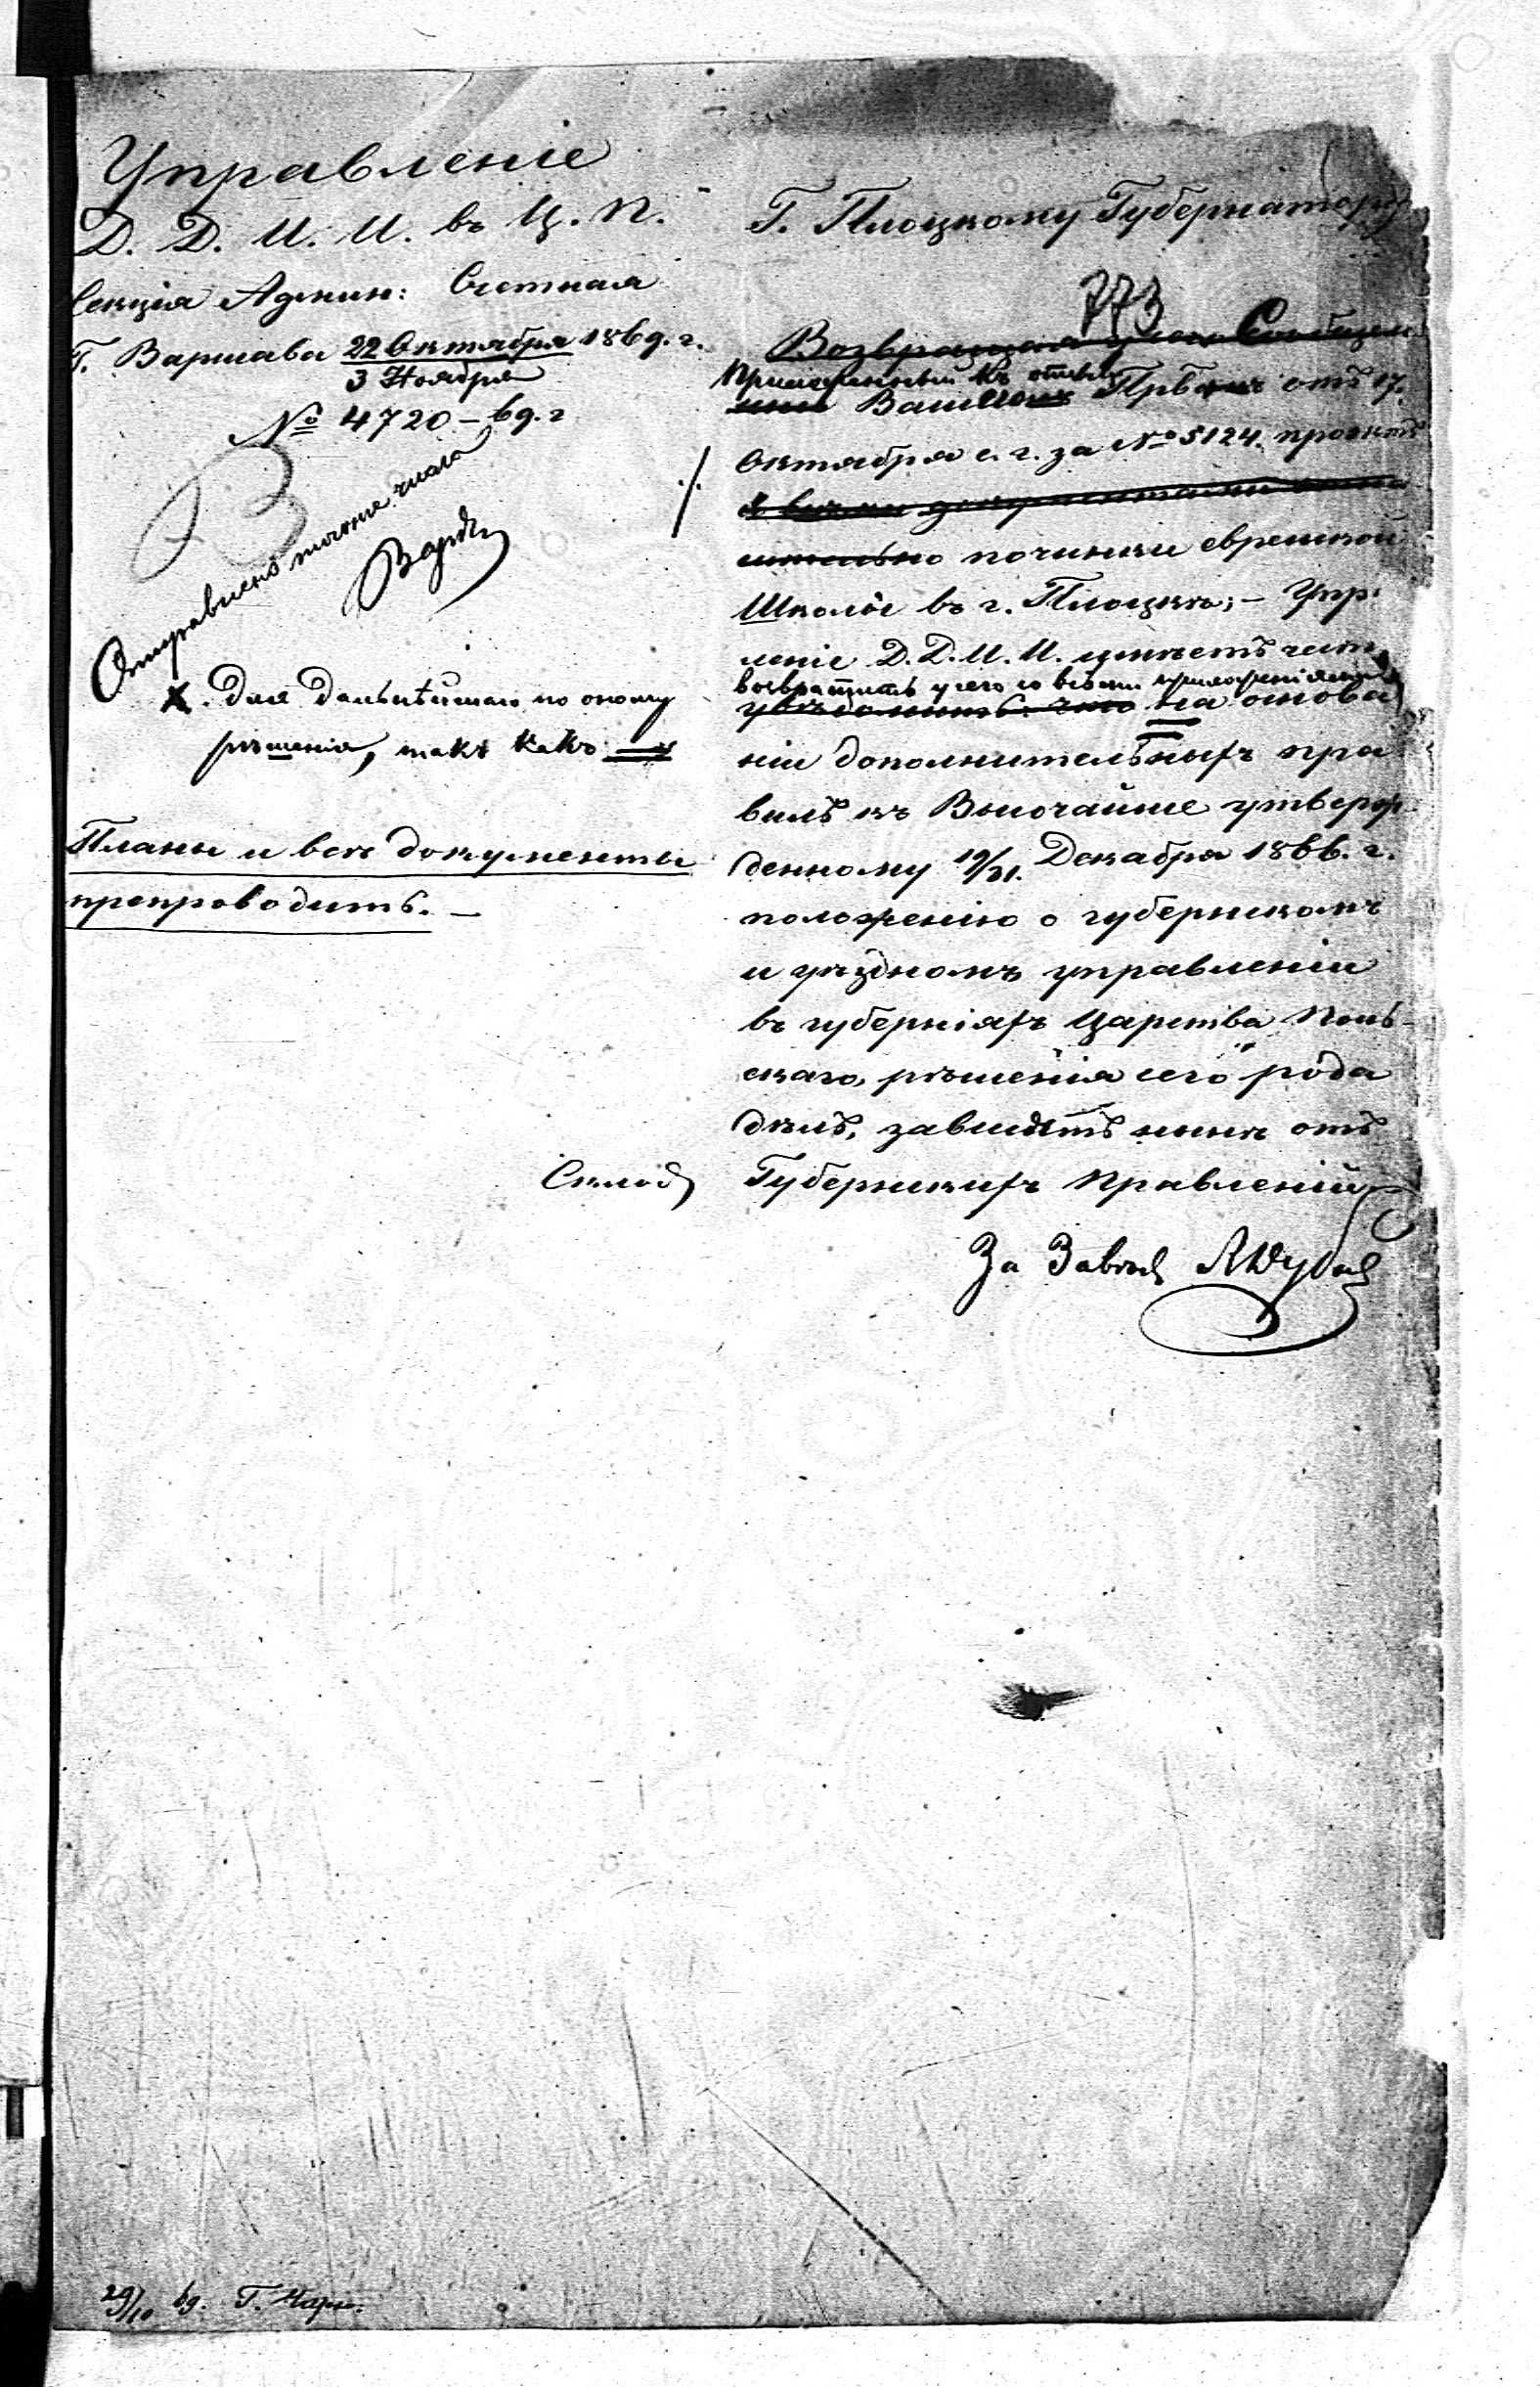 Управленіе
Д. Д. И. И. въ Ц. П.
Секція Админ: Счетная
Г. Варшава 22 Октября 1869. г.
3 Ноября
№ 4720 – 69. г
Отправлено того же числа
Х. Для дальнѣйшаго по оному
рѣшенія, такъ какъ
Планы и всѣ документы
препроводить. –
Г. Плоцкому Губернатору
773
Возвращая при Сообщен
приложенный къ отзыву
Вашему Прву отъ 17.
Октября с. г. за № 5124. проэктъ
починки еврейской
Школы въ г. Плоцкѣ; – Упр
леніе Д. Д. И. И. имѣетъ честь
возвратить у сего со всѣми приложеніями
увѣдомить что на основа
ніи дополнительныхъ пра
вилъ къ Высочайше утверж
денному 19/31. Декабря 1866. г.
положенію о губернскомъ
и уѣздномъ управленіи
въ губерніяхъ Царства Поль-
скаго, рѣшенія сего рода
дѣлъ, зависятъ нынѣ отъ
Губернскихъ Правленій
За Завѣд
29/10 69.